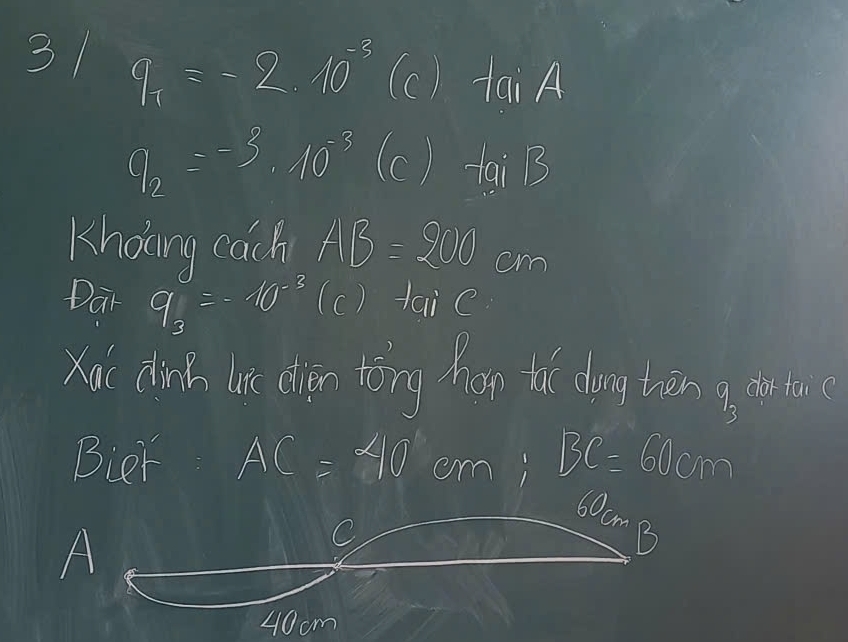 3/ q₁ = - 2. 10⁻³ (C) tại A
q₂ = -3. 10⁻³ (C) tại B
Khoảng cách AB = 200 cm
Đặt q₃ = - 10⁻³ (C) tại C.
Xác định lực điện tổng hợp tác dụng trên q₃ đặt tại C
Biết : AC = 40 cm ; BC = 60cm
60cm
A C B
40cm